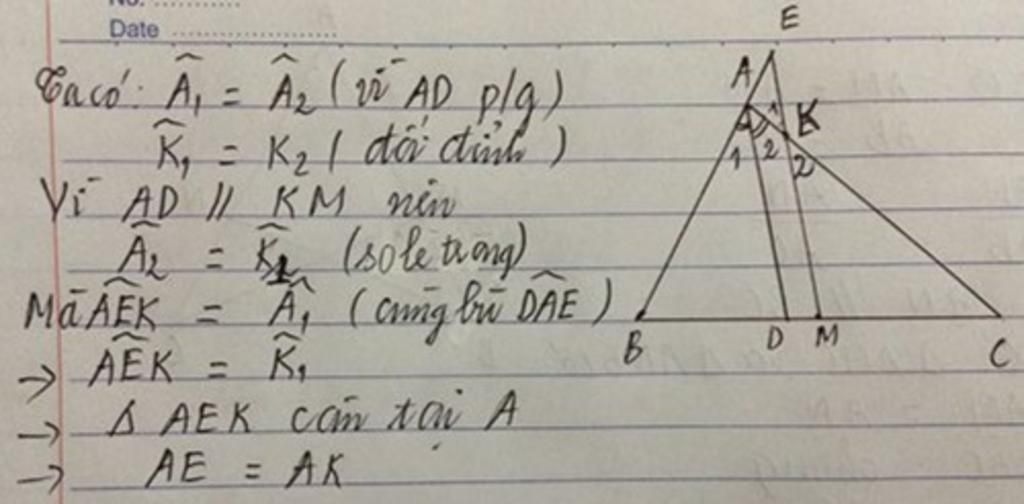 No. ............
Date ....................
Ta có: Â₁ = Â₂ (vì AD p/g)
K̂₁ = K₂ ( đối đỉnh )
Vì AD // KM nên
Â₂ = K̂₁ (sole trong)
Mà ÂÊK̂ = Â₁ (cùng bù DÂE )
→ AÊK = K̂₁
→ Δ AEK cân tại A
→ AE = AK
E
A
1
K
1 2 2
B D M C